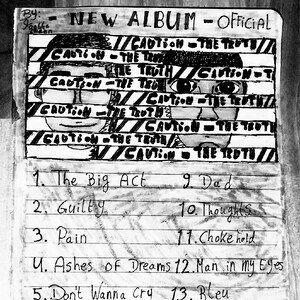 By:
- NEW ALBUM - OFFICIAL
CAUTION - THE TRUTH
THE TRUTH
CAUTION - T
CAUTION - THE TRUTH
THE TRUTH
CAUTION - THE TRUTH
CAUTION - THE TRUTH
CAUTION - THE TRUTH
CAUTION - THE TRUTH
1. The Big Act
2. Guilty
3. Pain
4. Ashes of Dreams
5. Don't Wanna Cry
9. Dad
10. Thoughts
11. Choke hold
12. Man in my Eyes
13. Bleu